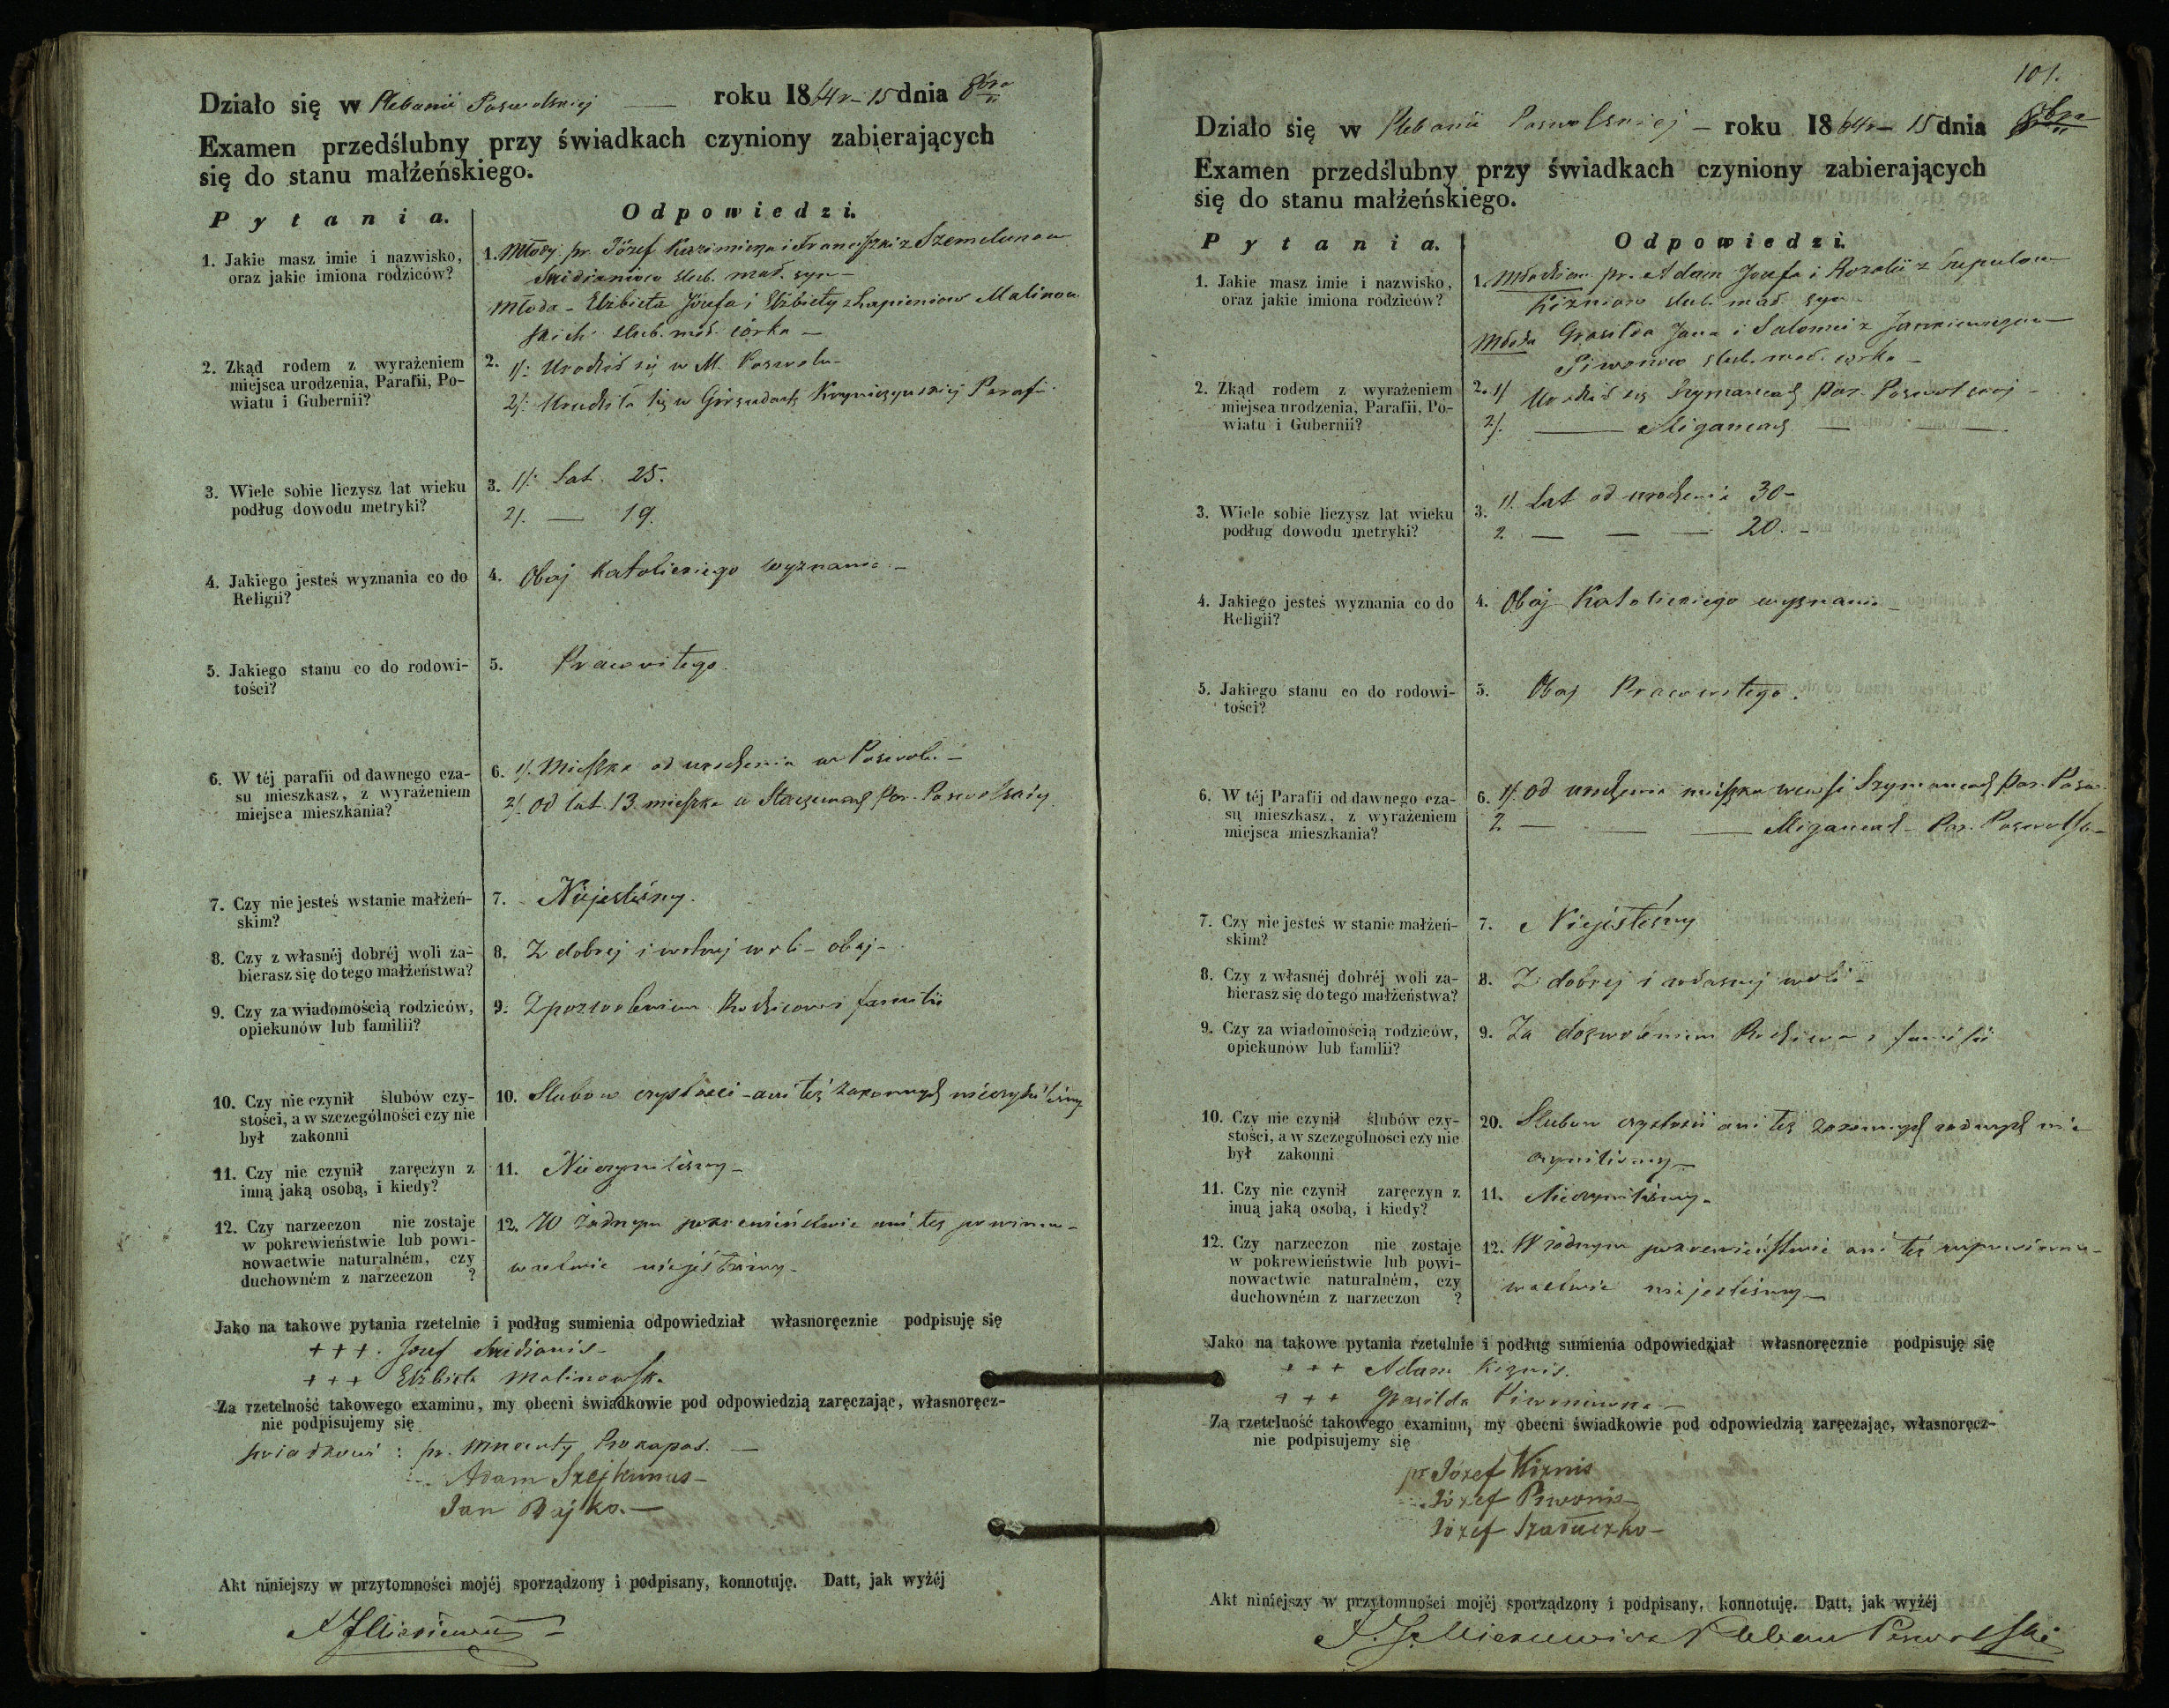 Działo się w Plebanii Poswolskiej — roku 1864 r – 15 dnia 8bra
Examen przedślubny przy świadkach czyniony zabierających
się do stanu małżeńskiego.
Pytania. Odpowiedzi.
1. Jakie masz imie i nazwisko,
oraz jakie imiona rodziców?
1. Młody pr. Józef Kazimierza i Franciszki z Szemelunow
ślub. mał. syn –
Młoda – Elżbieta Józefa i Elżbiety z Łapieniow Malinow
skich ślub. mał. córka –
2. Zkąd rodem z wyrażeniem
miejsca urodzenia, Parafii, Po-
wiatu i Gubernii?
2. 1/: Urodził się w M. Poswolu –
2/: Urodziła się w Girsudach Parafi
3. Wiele sobie liczysz lat wieku
podług dowodu metryki?
3. 1/: Lat. 25.
2/. — 19.
4. Jakiego jesteś wyznania co do
Religii?
4. Obaj Katolickiego wyznania –
5. Jakiego stanu co do rodowi-
tości?
5. Prawowitego.
6. W téj parafii od dawnego cza-
su mieszkasz, z wyrażeniem
miejsca mieszkania?
6. 1/. Mieszka od urodzenia w Poswolu –
2/. Od lat 13 mieszka w Par. Poswolskiej
7. Czy nie jesteś wstanie małżeń-
skim?
7. – Niejesteśmy.
8. Czy z własnéj dobréj woli za-
bierasz się do tego małżeństwa?
8. Z dobrej i wolnej woli – obaj –
9. Czy za wiadomością rodziców,
opiekunów lub familii?
9. Z pozwoleniem Rodzicow i familii
10. Czy nie czynił ślubów czy-
stości, a w szczególności czy nie
był zakonni
10. Slubow czystości – ani też zakonnych nieczyniliśmy
11. Czy nie czynił zaręczyn z
inną jaką osobą, i kiedy?
11. Nieczyniliśmy –
12. Czy narzeczon nie zostaje
w pokrewieństwie lub powi-
nowactwie naturalném, czy
duchowném z narzeczon ?
12. W żadnym pokrewieństwie ani też powino-
wactwie niejesteśmy –
Jako na takowe pytania rzetelnie i podług sumienia odpowiedział własnoręcznie podpisuję się
+++. Jozef
+++ Elżbieta Malinowska
Za rzetelność takowego examinu, my obecni świadkowie pod odpowiedzią zaręczając, własnoręcz-
nie podpisujemy się
swiadkowi : pr. Wincenty Prokopas. —
Adam Szejkunas –
Jan Bajko. —
Akt niniejszy w przytomności mojéj sporządzony i podpisany, konnotuję. Datt, jak wyżéj
101.
Działo się w Plebanii Poswolskiej – roku 1864 r – 15 dnia 8bra
Examen przedślubny przy świadkach czyniony zabierających
się do stanu małżeńskiego.
Pytania. Odpowiedzi.
1. Jakie masz imie i nazwisko,
oraz jakie imiona rodziców?
1. pr. Adam Jozefa i Rozalii z
Kiżniow ślub. mał. syn
Młoda Grasilda Jana i Salomei z
Piwoniow ślub. mał. córka –
2. Zkąd rodem z wyrażeniem
miejsca urodzenia, Parafii, Po-
wiatu i Gubernii?
2. 1/ Urodził się Szymancach Par. Poswolskiej –
2/. — Migancach — —
3. Wiele sobie liczysz lat wieku
podług dowodu metryki?
3. 1/. Lat od urodzenia 30 –
2. — — — 20. –
4. Jakiego jesteś wyznania co do
Religii?
4. Obaj Katolickiego wyznania –
5. Jakiego stanu co do rodowi-
tości?
5. Obaj Prawowitego.
6. W téj Parafii od dawnego cza-
su mieszkasz, z wyrażeniem
miejsca mieszkania?
6. 1/. Od urodzenia mieszka we wsi Szymancach Par. Posw.
2 — — — Migancach – Par. Poswolsk –
7. Czy nie jesteś w stanie małżeń-
skim?
7. Niejesteśmy
8. Czy z własnéj dobréj woli za-
bierasz się do tego małżeństwa?
8. Z dobrej i własnej woli –
9. Czy za wiadomością rodziców,
opiekunów lub famlii?
9. Za dozwoleniem Rodzicow i familii
10. Czy nie czynił ślubów czy-
stości, a w szczególności czy nie
był zakonni
20. Slubow czystości ani też zakonnych żadnych nie
czyniliśmy –
11. Czy nie czynił zaręczyn z
inuą jaką osobą, i kiedy?
11. Nieczyniliśmy –
12. Czy narzeczon nie zostaje
w pokrewieństwie lub powi-
nowactwie naturalném, czy
duchowném z narzeczon ?
12. W żadnym pokrewieństwie ani też w powino-
wactwie niejesteśmy –
Jako na takowe pytania rzetelnie i podług sumienia odpowiedział własnoręcznie podpisuję się
+++ Adam Kiżnis.
+++ Grasilda Piwoniowna –
Za rzetelność takowego examinu, my obecni świadkowie pod odpowiedzią zaręczając, własnoręcz-
nie podpisujemy się
pr Józef Kiżnis
Józef Piwonis –
Józef Szaduczko –
Akt niniejszy w przytomności mojéj sporządzony i podpisany, konnotuję. Datt, jak wyżéj
Pleban Poswolski